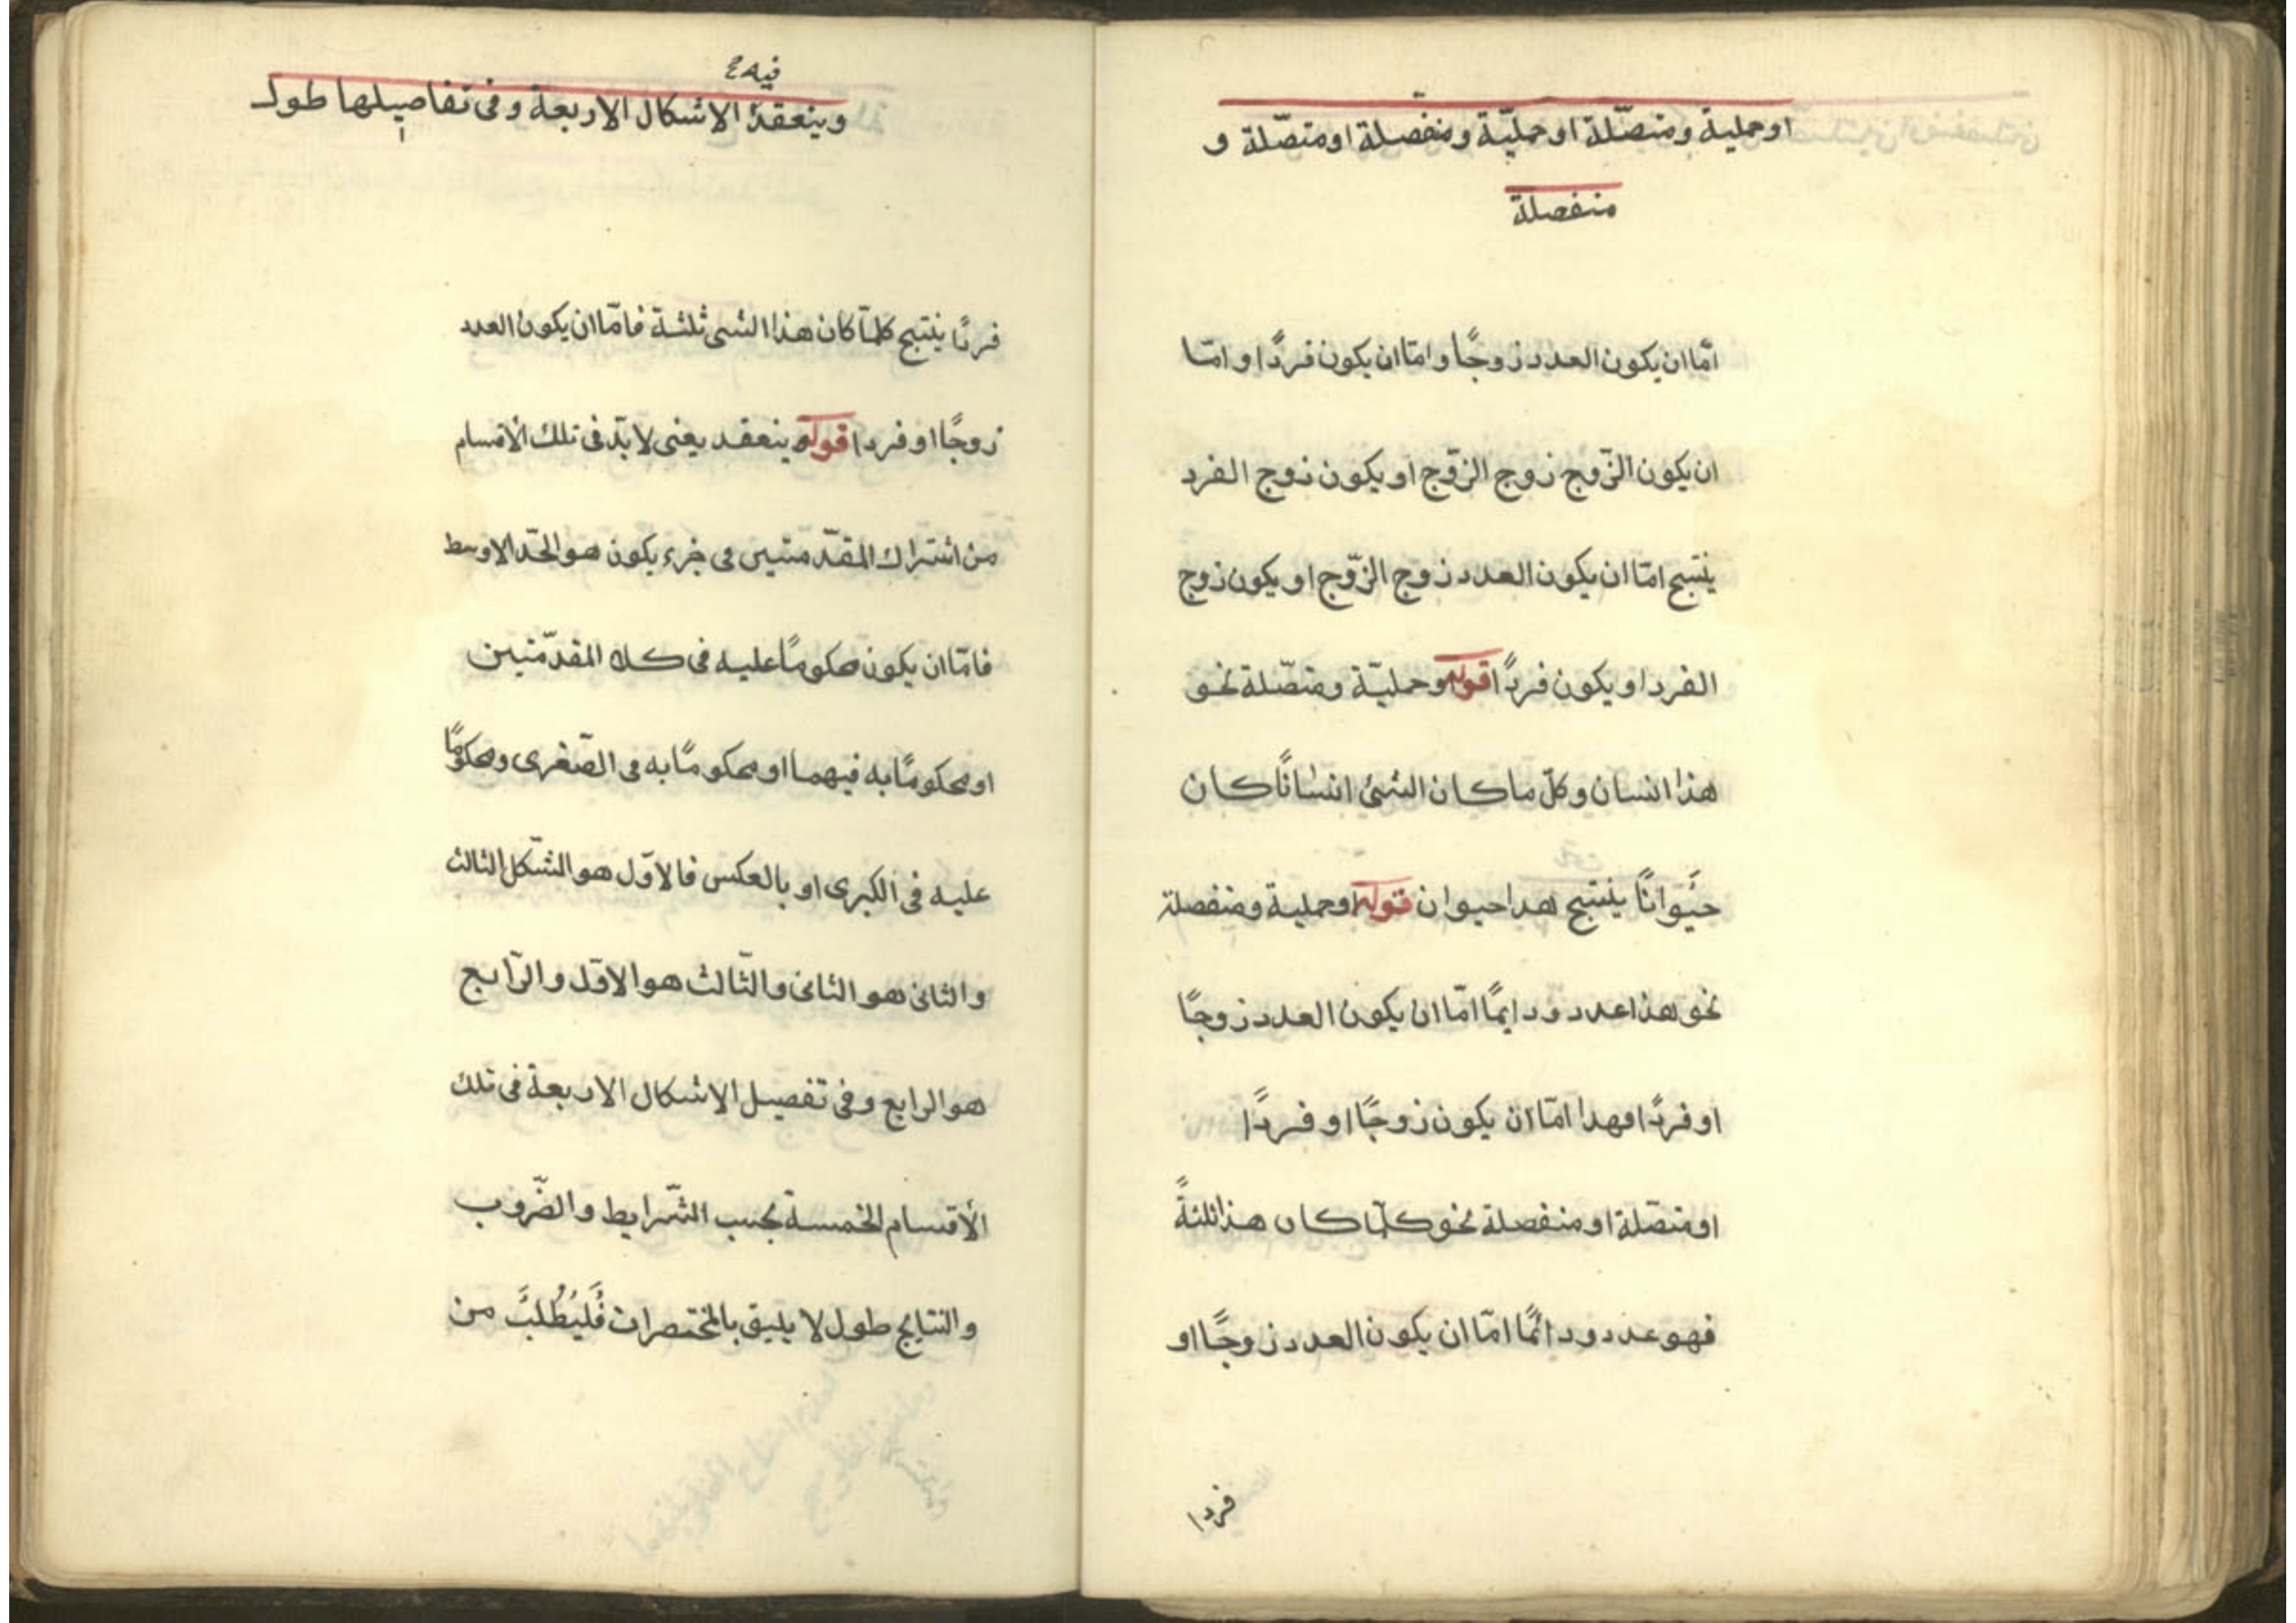 او حملية ومتصّلة او حمليّة ومنفصلة او متصّلة و
منفصلة
امّا ان يكون العدد زوجًا وامّا ان يكون فردًا وامّا
ان يكون الزّوج زوج الزّوج او يكون زوج الفرد
ينتج امّا ان يكون العدد زوج الزّوج او يكون زوج
الفرد او يكون فردًا قوله وحمليّة ومتصّلة نحو
هذا انسان وكلّ ما كان الشئ انسانًا كان
حيوانًا ينتج هذا حيوان قوله او حملية ومنفصلة
نحو هذا عدد ودايمًا امّا ان يكون العدد زوجًا
او فردًا فهذا امّا ان يكون زوجًا او فردًا
او متصّلة او منفصلة نحو كلّما كان هذا ثلثةً
فهو عدد ودائمًا امّا ان يكون العدد زوجًا او
فردا
فيه
وينعقد الاشكال الاربعة وفى تفاصيلها طول
فردًا ينتج كلمّا كان هذا الشى ثلثة فامّا ان يكون العدد
زوجًا او فردا قوله ينعقد يعنى لا بدّ فى تلك الأقسام
من اشتراك المقدّمتين فى جزء يكون هو الحدّ الاوسط
فامّا ان يكون محكومًا عليه فى كلا المقدّمتين
او محكومًا به فيهما او محكومًا به فى الصّغرى ومحكومًا
عليه فى الكبرى او بالعكس فالاوّل هو الشّكل الثالث
والثانى هو الثانى والثّالث هو الاوّل والرّابع
هو الرابع وفى تفصيل الاشكال الاربعة فى تلك
الأقسام الخمسة بحسب الشّرايط والضّروب
والنتايج طول لا يليق بالمختصرات فَليُطْلَبْ من